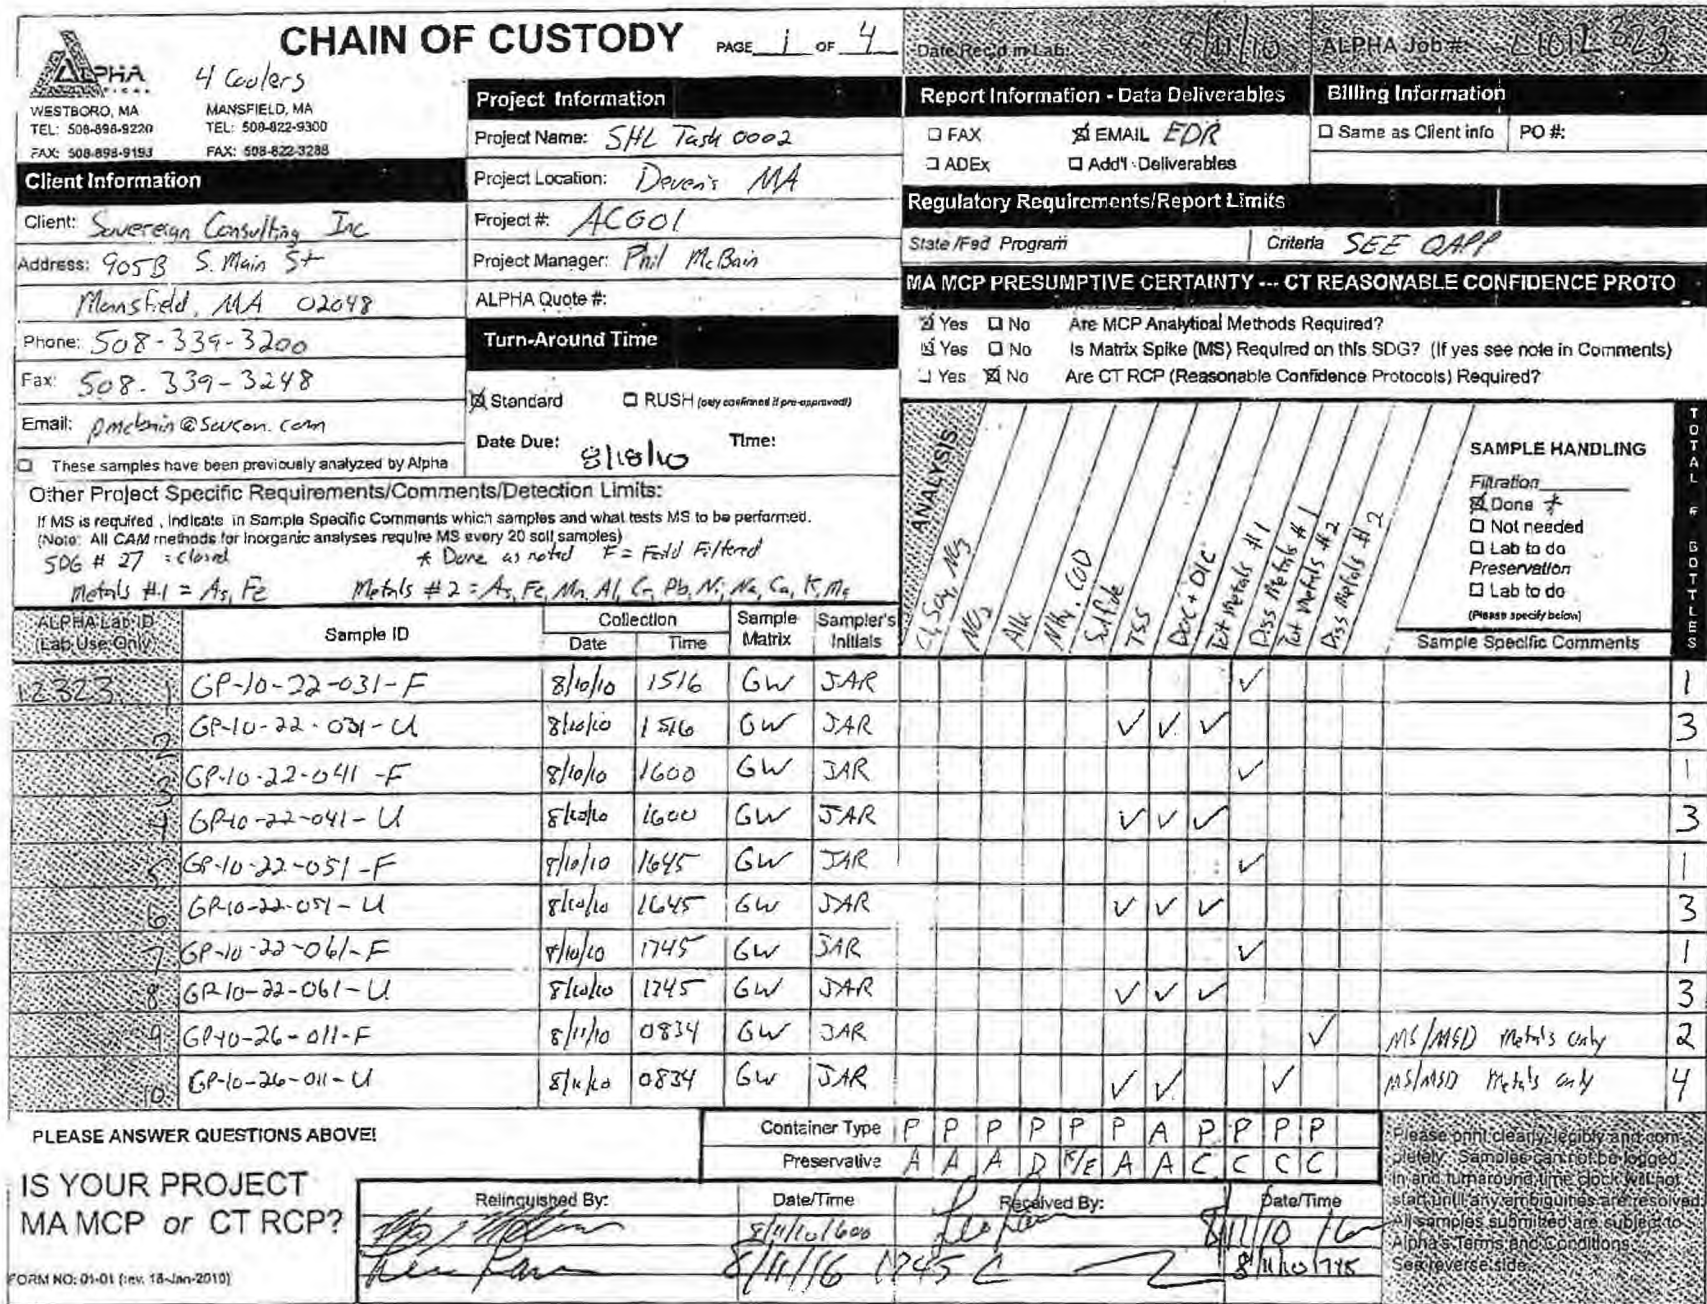 CHAIN OF CUSTODY PAGE 1 OF 4
Date Rec'd in Lab: 8/11/10 ALPHA Job #: L1012323
ALPHA
4 Coolers
WESTBORO, MA MANSFIELD, MA
TEL: 508-898-9220 TEL: 508-822-9300
FAX: 508-898-9193 FAX: 508-822-3288
Client Information
Client: Sovereign Consulting Inc
Address: 905B S. Main St
Mansfield, MA 02048
Phone: 508-339-3200
Fax: 508-339-3248
Email: pmcbain@sovcon.com
These samples have been previously analyzed by Alpha
Project Information
Project Name: SHL Task 0002
Project Location: Devens MA
Project #: ACG01
Project Manager: Phil McBain
ALPHA Quote #:
Turn-Around Time
Standard RUSH (only confirmed if pre-approved!)
Date Due: 8/18/10 Time:
Report Information - Data Deliverables
FAX EMAIL EDR
ADEx Add'l Deliverables
Billing Information
Same as Client info PO #:
Regulatory Requirements/Report Limits
State/Fed Program Criteria SEE QAPP
MA MCP PRESUMPTIVE CERTAINTY --- CT REASONABLE CONFIDENCE PROTO
Yes No Are MCP Analytical Methods Required?
Yes No Is Matrix Spike (MS) Required on this SDG? (If yes see note in Comments)
Yes No Are CT RCP (Reasonable Confidence Protocols) Required?
Other Project Specific Requirements/Comments/Detection Limits:
If MS is required, indicate in Sample Specific Comments which samples and what tests MS to be performed.
(Note: All CAM methods for inorganic analyses require MS every 20 soil samples)
SDG # 27 = closed * Done as noted F = Field Filtered
Metals #1 = As, Fe Metals #2 = As, Fe, Mn, Al, Cr, Pb, Ni, Na, Ca, K, Mg
ANALYSIS
Cl, SO4, NO3
NO2
Alk
NH4, COD
Sulfide
TSS
DOC + DIC
Tot Metals #1
Diss Metals #1
Tot Metals #2
Diss Metals #2
SAMPLE HANDLING
Filtration
Done *
Not needed
Lab to do
Preservation
Lab to do
(Please specify below)
TOTAL # BOTTLES
ALPHA Lab ID (Lab Use Only) Sample ID Collection Date Time Sample Matrix Sampler's Initials Sample Specific Comments
12323 1 GP-10-22-031-F 8/10/10 1516 GW JAR ✓ 1
2 GP-10-22-031-U 8/10/10 1516 GW JAR ✓ ✓ ✓ 3
3 GP-10-22-041-F 8/10/10 1600 GW JAR ✓ 1
4 GP-10-22-041-U 8/10/10 1600 GW JAR ✓ ✓ ✓ 3
5 GP-10-22-051-F 8/10/10 1645 GW JAR ✓ 1
6 GP-10-22-051-U 8/10/10 1645 GW JAR ✓ ✓ ✓ 3
7 GP-10-22-061-F 8/10/10 1745 GW JAR ✓ 1
8 GP-10-22-061-U 8/10/10 1745 GW JAR ✓ ✓ ✓ 3
9 GP-10-26-011-F 8/11/10 0834 GW JAR ✓ MS/MSD Metals only 2
10 GP-10-26-011-U 8/11/10 0834 GW JAR ✓ ✓ ✓ MS/MSD Metals only 4
PLEASE ANSWER QUESTIONS ABOVE!
Container Type P P P P P P A P P P P
Preservative A A A D K/E A A C C C C
IS YOUR PROJECT
MA MCP or CT RCP?
Relinquished By: Date/Time Received By: Date/Time
8/11/10 1600 8/11/10
8/11/16 1745 8/11/10 1745
Please print clearly, legibly and completely. Samples can not be logged in and turnaround time clock will not start until any ambiguities are resolved. All samples submitted are subject to Alpha's Terms and Conditions. See reverse side.
FORM NO: 01-01 (rev. 18-Jan-2010)